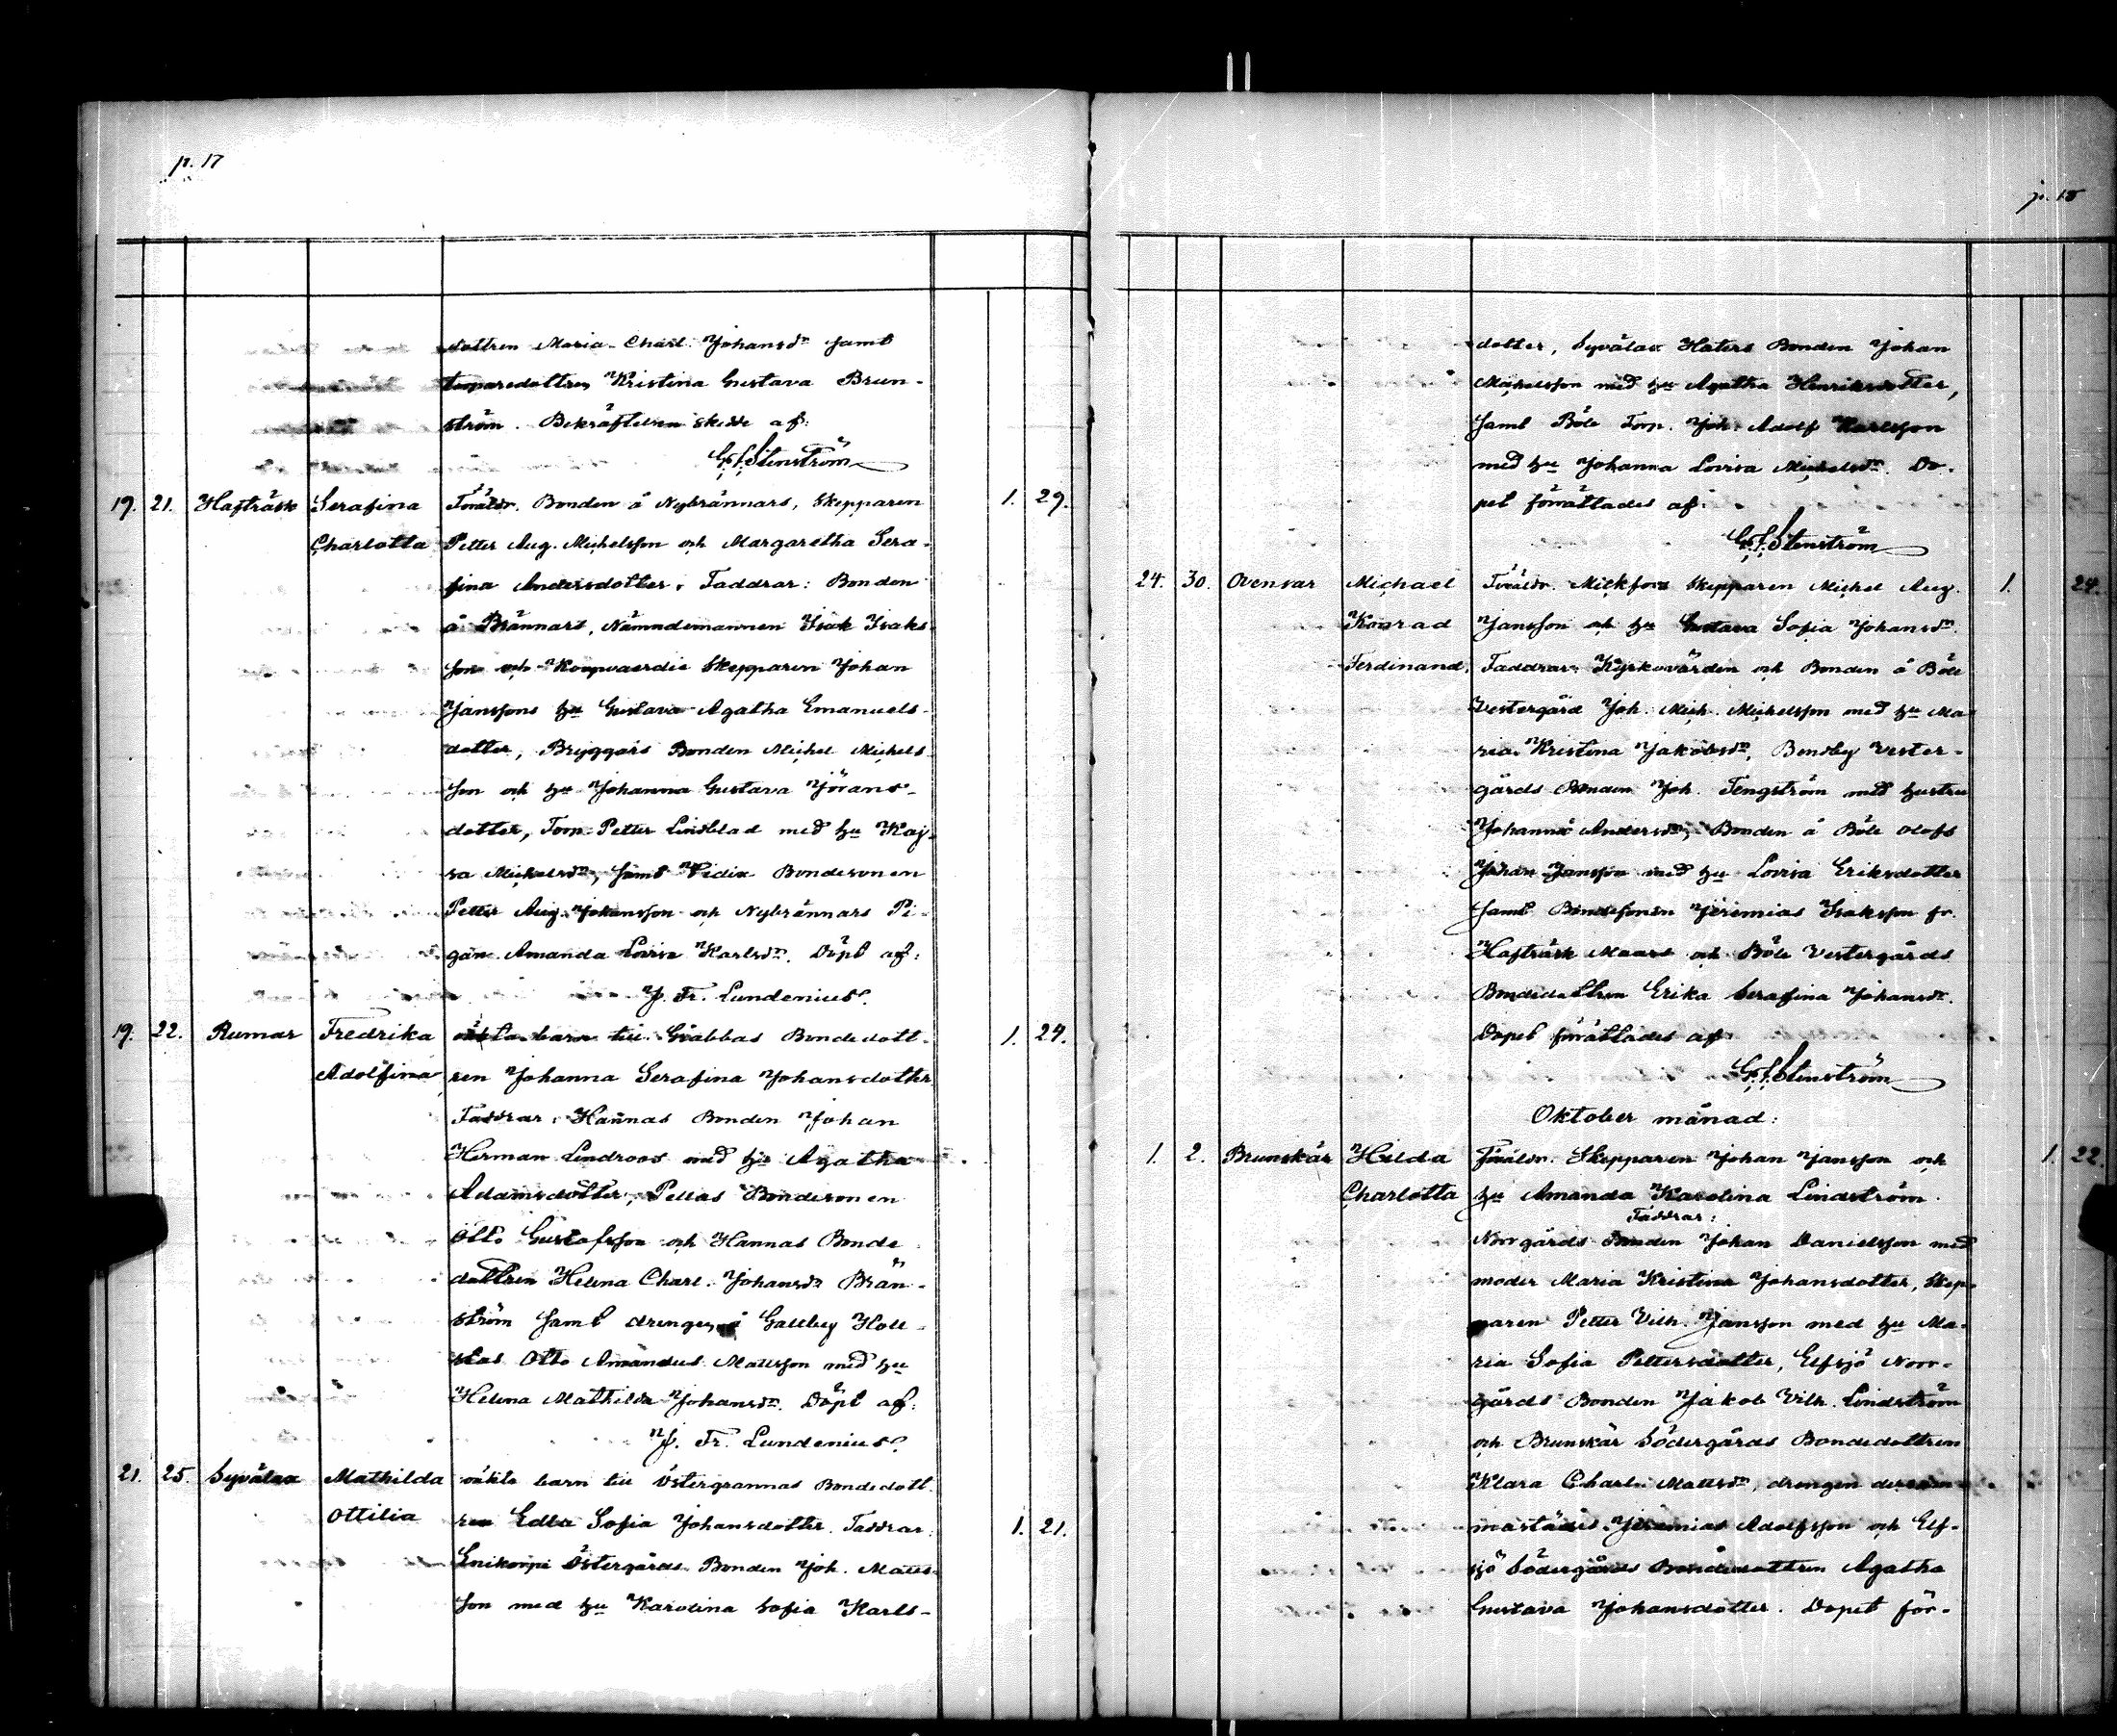 p. 17
dottren Maria Charl. Johansdr samt
torparedottren Kristina Gustava Brun-
ström. Bekräftelsen skedde af:
G. F. Stenström
19. 21. Hafträsk Serafina Föräldr. Bonden å Nybrännars, Skepparen 1. 29.
Charlotta Petter Aug. Michelsson och Margaretha Sera-
fina Andersdotter. Faddrar: Bonden
å Brännars, Nämndemannen Isak Isaks-
son och Koopvaerdie Skepparen Johan
Janssons hu Gustava Agatha Emanuels-
dotter, Bryggars Bonden Michel Michels-
son och hu Johanna Gustava Jörans-
dotter, Torp. Petter Lindblad med hu Kaj-
sa Michelsdr, samt Bondesonen
Petter Aug. Johansson och Nybrännars Pi-
gan Amanda Lovisa Karlsdr. Döpt af:
J. Fr. Lundenius.
19. 22. Rumar Fredrika oäkta barn till Gräbbas Bondedott- 1. 24.
Adolfina ren Johanna Serafina Johansdotter
Faddrar: Hannas Bonden Johan
Herman Lindroos med hu Agatha
Adamsdotter, Pellas Bondesonen
Otto Gustafsson och Hannas Bonde
dottren Helena Charl. Johansdr Brän-
ström samt drengen å Gallby Holl-
stas Otto Amandus Mattsson med hu
Helena Mathilda Johansdr. Döpt af:
J. Fr. Lundenius.
21. 25. Syvälax Mathilda oäkta barn till Östergrannas Bondedott-
Ottilia ren Edla Sofia Johansdotter. Faddrar: 1. 21.
Östergårds Bonden Joh. Matts-
son med hu Karolina Sofia Karls-
p. 18
dotter, Syvälax Haters Bonden Johan
Michelsson med hu Agatha Henriksdotter,
samt Böle Torp. Joh. Adolf Karlsson
med hu Johanna Lovisa Michelsdr. Do-
pet förrättades af:
G. F. Stenström
24. 30. Ovensar Michael Föräldr. Skepparen Michel Aug. 1. 24.
Konrad Jansson och hu Gustava Sofia Johansdr.
Ferdinand. Faddrar: Kyrkovärden och Bonden å Böle
Vestergård Joh. Mich. Michelsson med hu Ma
ria Kristina Jakobsdr, Bondby Vester-
gårds Bonden Joh. Tengström med hustru
Johanna Andersdr, Bonden å Böle Olofs
Johan Jansson med hu Lovisa Eriksdotter
samt Bondesonen Jeremias Isaksson fr.
Hafträsk Maars och Böle Vestergårds
Bondedottren Erika Serafina Johansdr.
Dopet förrättades af
G. F. Stenström
Oktober månad:
1. 2. Brunskär Hilda Föräldr. Skepparen Johan Jansson och 1. 22.
Charlotta hu Amanda Karolina Lindström.
Faddrar:
Norrgårds Bonden Johan Danielsson med
moder Maria Kristina Johansdotter, Skep-
paren Petter Vilh. Jansson med hu Ma-
ria Sofia Pettersdotter, Elfsjö Norr-
gårds Bonden Jakob Vilh. Lindström
och Brunskär Södergårds Bondedottren
Klara Charl. Mattsdr, drengen
Jeremias Adolfsson och Elf-
sjö Södergårds Bondedottren Agatha
Gustava Johansdotter. Dopet för-